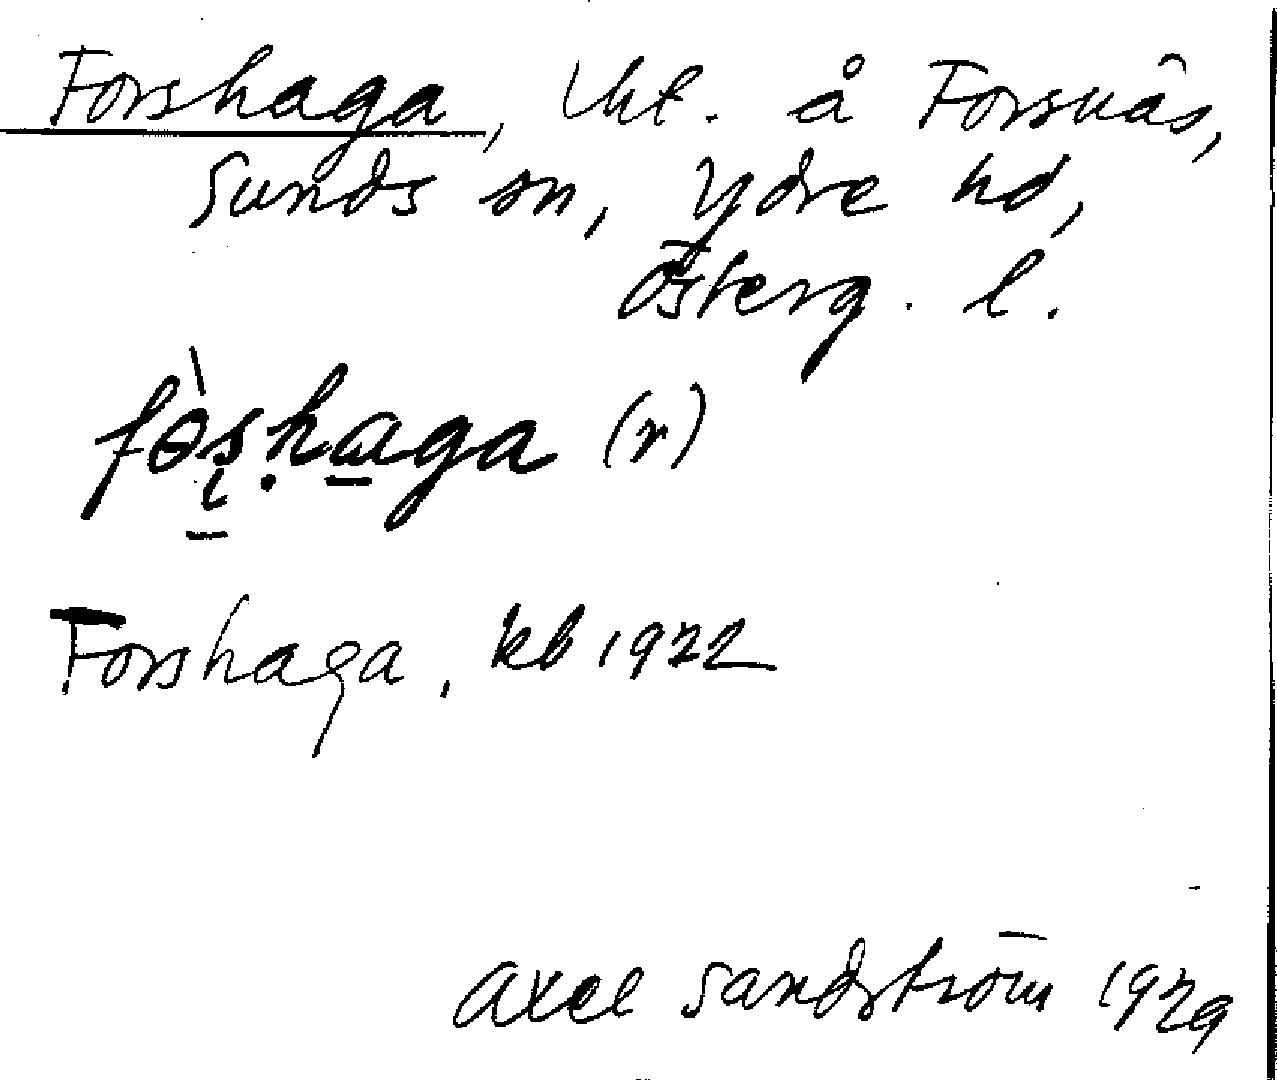 Forshaga, lht. å Forsnäs,
Sunds sn, Ydre hd,
Österg. l.
fɵ̀ṣḥaga (r)
Forshaga, kb 1922
Axel Sandström 1929